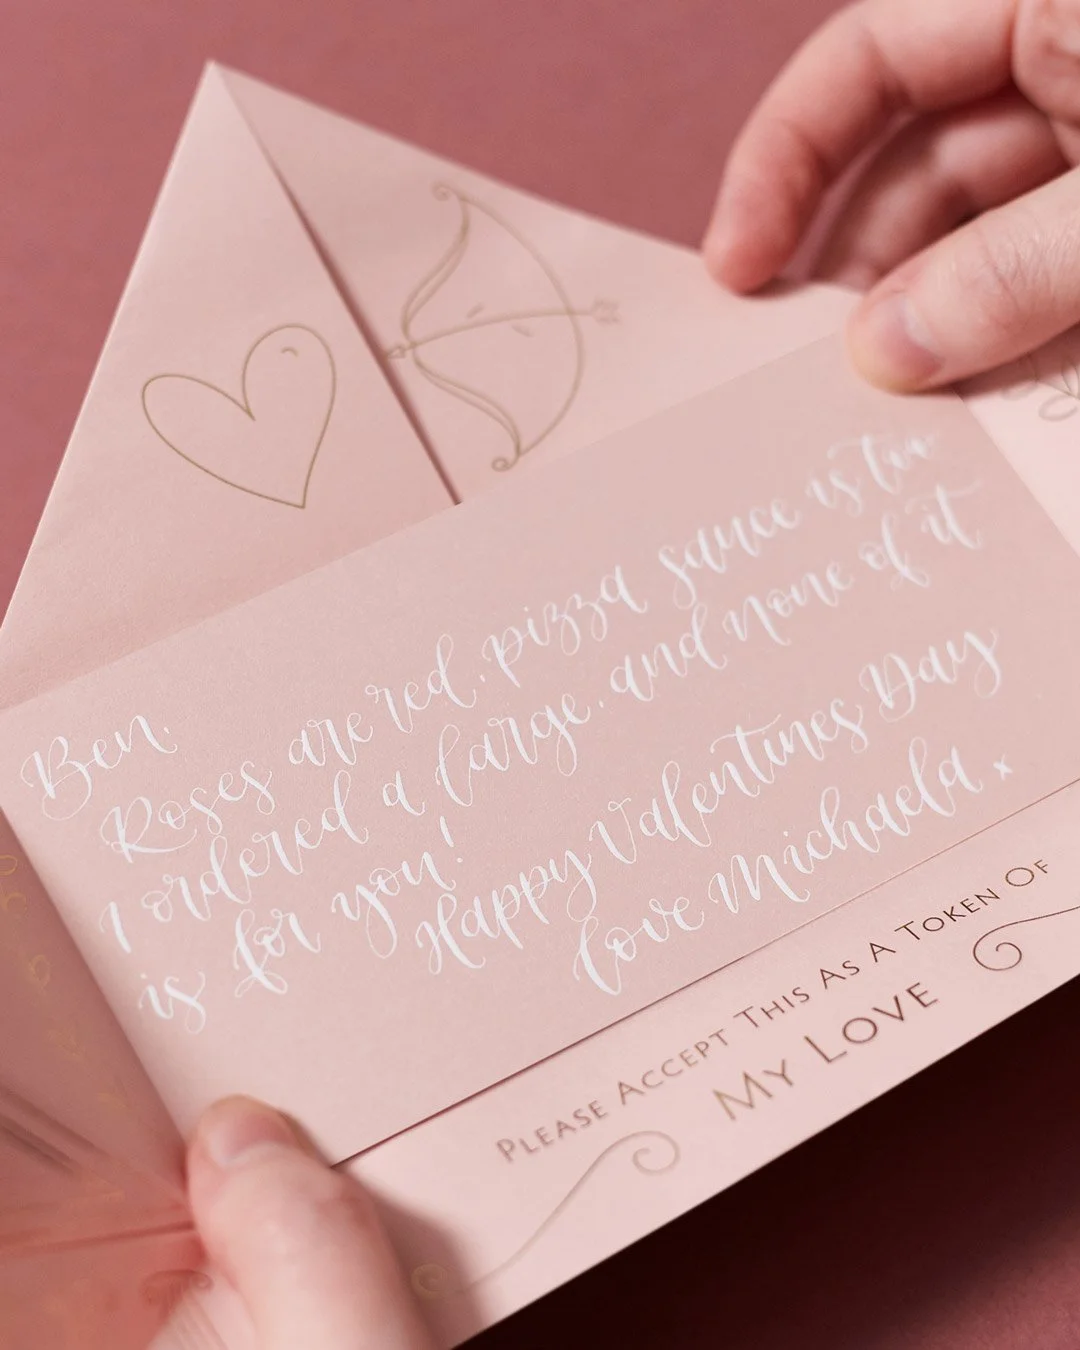 Ben,
Roses are red, pizza sauce is too
I ordered a large, and none of it
is for you!
Happy Valentines Day
love Michaela. x
PLEASE ACCEPT THIS AS A TOKEN OF
MY LOVE